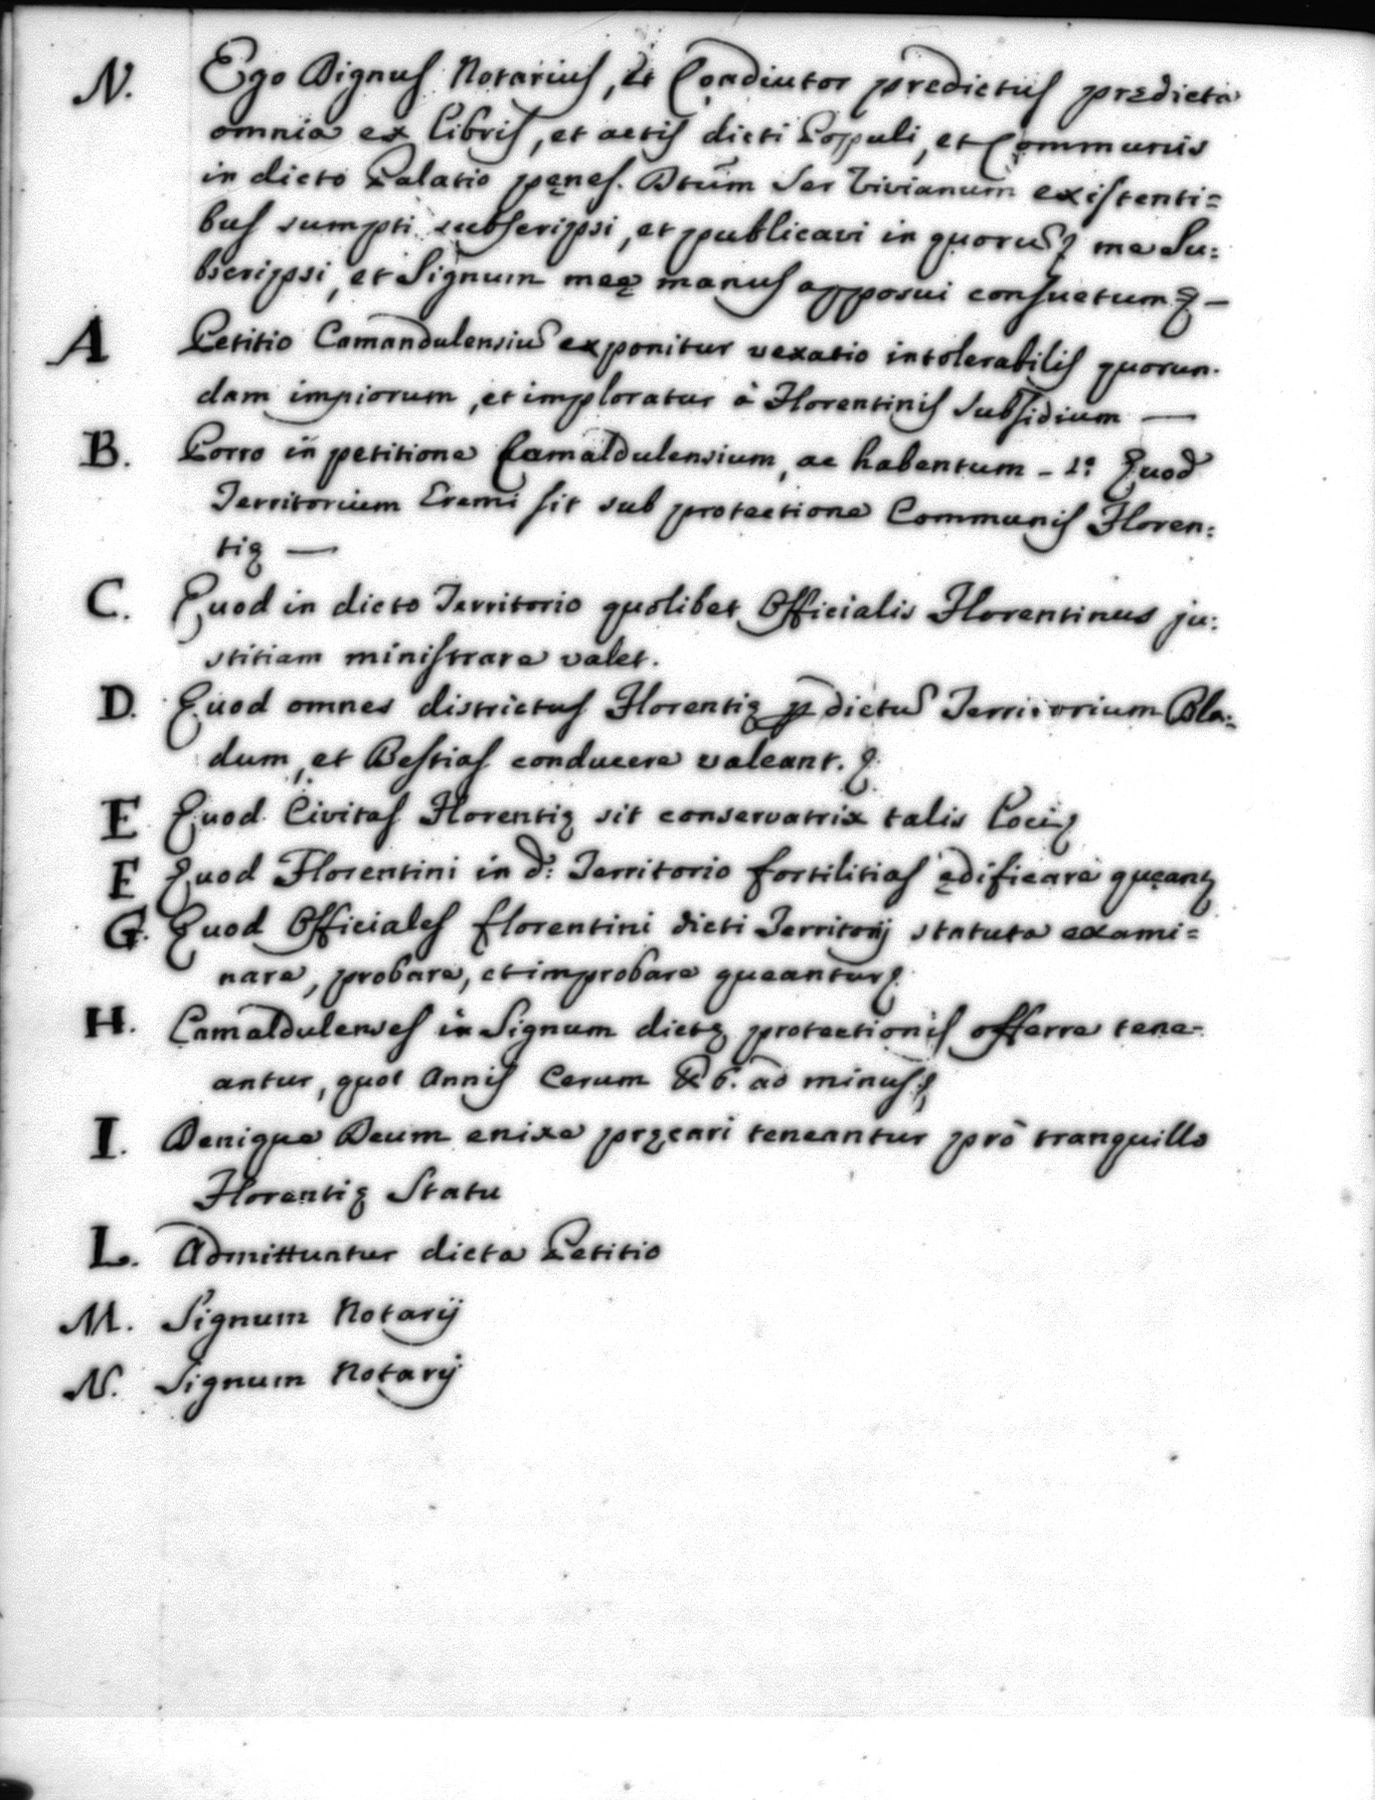 N. Ego Dignus Notarius, et Coadiutor predictus prędicta
omnia ex Libris, et actis dicti Populi, et Communis
in dicto Palatio pęnes. Dtum Ser Vivianum existenti=
bus sumpti subscripsi, et publicavi in quorum me Su:
bscripsi, et Signum meę manus apposui consuetum —
A Petitio Camandulensiu exponitur vexatio intolerabilis quorun.
dam impiorum, et imploratur à Florentinis subsidium —
B. Porro in petitione Camaldulensium, ac habentum - 1º Quod
Territorium Eremi sit sub protectione Communis Floren:
tię —
C. Quod in dicto Territorio quolibet Officialis Florentinus ju:
stitiam ministrare valet.
D. Quod omnes districtus Florentię p dictu Territorium Bla=
dum, et Bestias conducere valeant.
E Quod Civitas Florentię sit conservatrix talis Loci
F Quod Florentini in d: Territorio fortilitias ędificare quęant
G. Quod Officiales florentini dicti Territorij statuta exami=
nare, probare, et improbare queantur
H. Camaldulenses in Signum dictę protectionis offerre tene-
antur, quot Annis Cerum 6. ad minus
I. Denique Deum enixe pręcari teneantur prò tranquillo
Florentię Statu
L. Admittuntur dicta Petitio
M. Signum Notarij
N. Signum Notarij